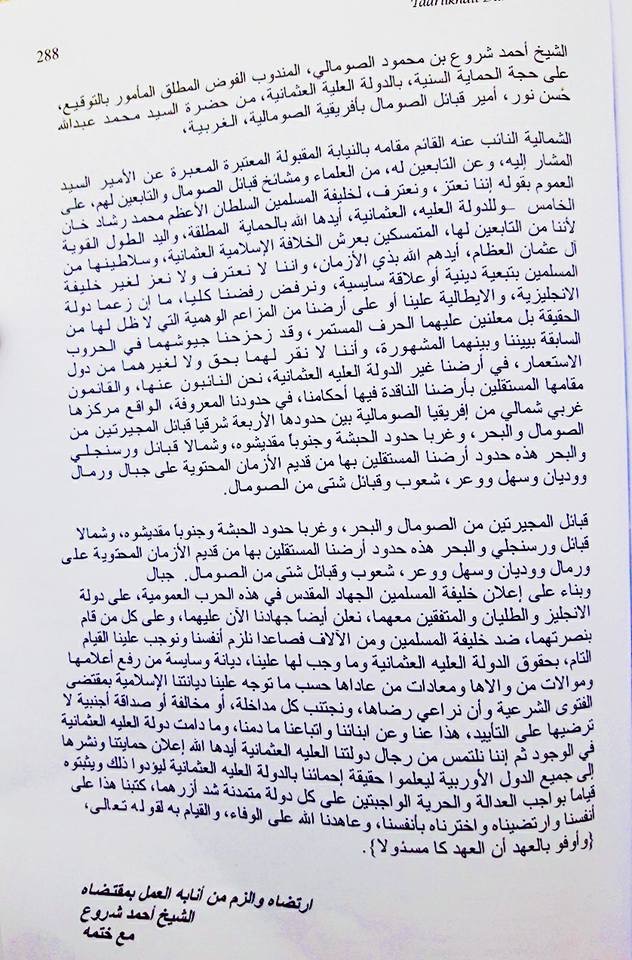 Taariikhdii
288
الشيخ أحمد شروع بن محمود الصومالي، المندوب الفوض المطلق المأمور بالتوقيع،
على حجة الحماية السنية، بالدولة العلية العثمانية، من حضرة السيد محمد عبدالله
حُسن نور، أمير قبائل الصومال بأفريقية الصومالية، الغربية،
الشمالية النائب عنه القائم مقامه بالنيابة المقبولة المعتبرة المعبرة عن الأمير السيد
المشار إليه، وعن التابعين له، من العلماء ومشائخ قبائل الصومال والتابعين لهم، على
العموم بقوله إننا نعتز، ونعترف، لخليفة المسلمين السلطان الأعظم محمد رشاد خان
الخامس وللدولة العليه، العثمانية، أيدها الله بالحماية المطلقة، واليد الطول القوية
لأننا من التابعين لها، المتمسكين بعرش الخلافة الإسلامية العثمانية، وسلاطينها من
آل عثمان العظام، أيدهم الله بذي الأزمان، واننا لا نعترف ولا نعز لغير خليفة
المسلمين بتبعية دينية أو علاقة سايسية، ونرفض رفضنا كليا، ما إن زعما دولة
الانجليزية، والايطالية علينا أو على أرضنا من المزاعم الوهمية التي لا ظل لها من
الحقيقة بل معلنين عليهما الحرف المستمر، وقد زحزحنا جيوشهما في الحروب
السابقة بييننا وبينهما المشهورة، وأننا لا نقر لهما بحق ولا لغيرهما من دول
الاستعمار، في أرضنا غير الدولة العليه العثمانية، نحن النائبون عنها، والقائمون
مقامها المستقلين بأرضنا الناقدة فيها أحكامنا، في حدودنا المعروفة، الواقع مركزها
غربي شمالي من إفريقيا الصومالية بين حدودها الأربعة شرقيا قبائل المجيرتين من
الصومال والبحر، وغربا حدود الحبشة وجنوباً مقديشوه، وشمالا قبائل ورسنجلي
والبحر هذه حدود أرضنا المستقلين بها من قديم الأزمان المحتوية على جبال ورمال
ووديان وسهل ووعر، شعوب وقبائل شتى من الصومال.
قبائل المجيرتين من الصومال والبحر، وغربا حدود الحبشة وجنوباً مقديشوه، وشمالا
قبائل ورسنجلي والبحر هذه حدود أرضنا المستقلين بها من قديم الأزمان المحتوية على
ورمال ووديان وسهل ووعر، شعوب وقبائل شتى من الصومال. جبال
وبناء على إعلان خليفة المسلمين الجهاد المقدس في هذه الحرب العمومية، على دولة
الانجليز والطليان والمتفقين معهما، نعلن أيضاً جهادنا الآن عليهما، وعلى كل من قام
بنصرتهما، ضد خليفة المسلمين ومن الآلاف فصاعدا نلزم أنفسنا ونوجب علينا القيام
التام، بحقوق الدولة العليه العثمانية وما وجب لها علينا، ديانة وسايسة من رفع أعلامها
وموالات من والاها ومعادات من عاداها حسب ما توجه علينا ديانتنا الإسلامية بمقتضى
الفتوى الشرعية وأن نراعي رضاها، ونجتنب كل مداخلة، أو مخالفة أو صداقة أجنبية لا
ترضيها على التأييد، هذا عنا وعن ابنائنا واتباعنا ما دمنا، وما دامت دولة العليه العثمانية
في الوجود ثم إننا نلتمس من رجال دولتنا العليه العثمانية أيدها الله إعلان حمايتنا ونشرها
إلى جميع الدول الأوربية ليعلموا حقيقة إحمائنا بالدولة العليه العثمانية ليؤدوا ذلك ويثبتوه
قياماً بواجب العدالة والحرية الواجبتين على كل دولة متمدنة شد أزرهما، كتبنا هذا على
أنفسنا وارتضيناه واخترناه بأنفسنا، وعاهدنا الله على الوفاء، والقيام به لقوله تعالى،
{وأوفو بالعهد أن العهد كا مسئولا}.
ارتضاه والزم من أنابه العمل بمقتضاه
الشيخ أحمد شروع
مع ختمه